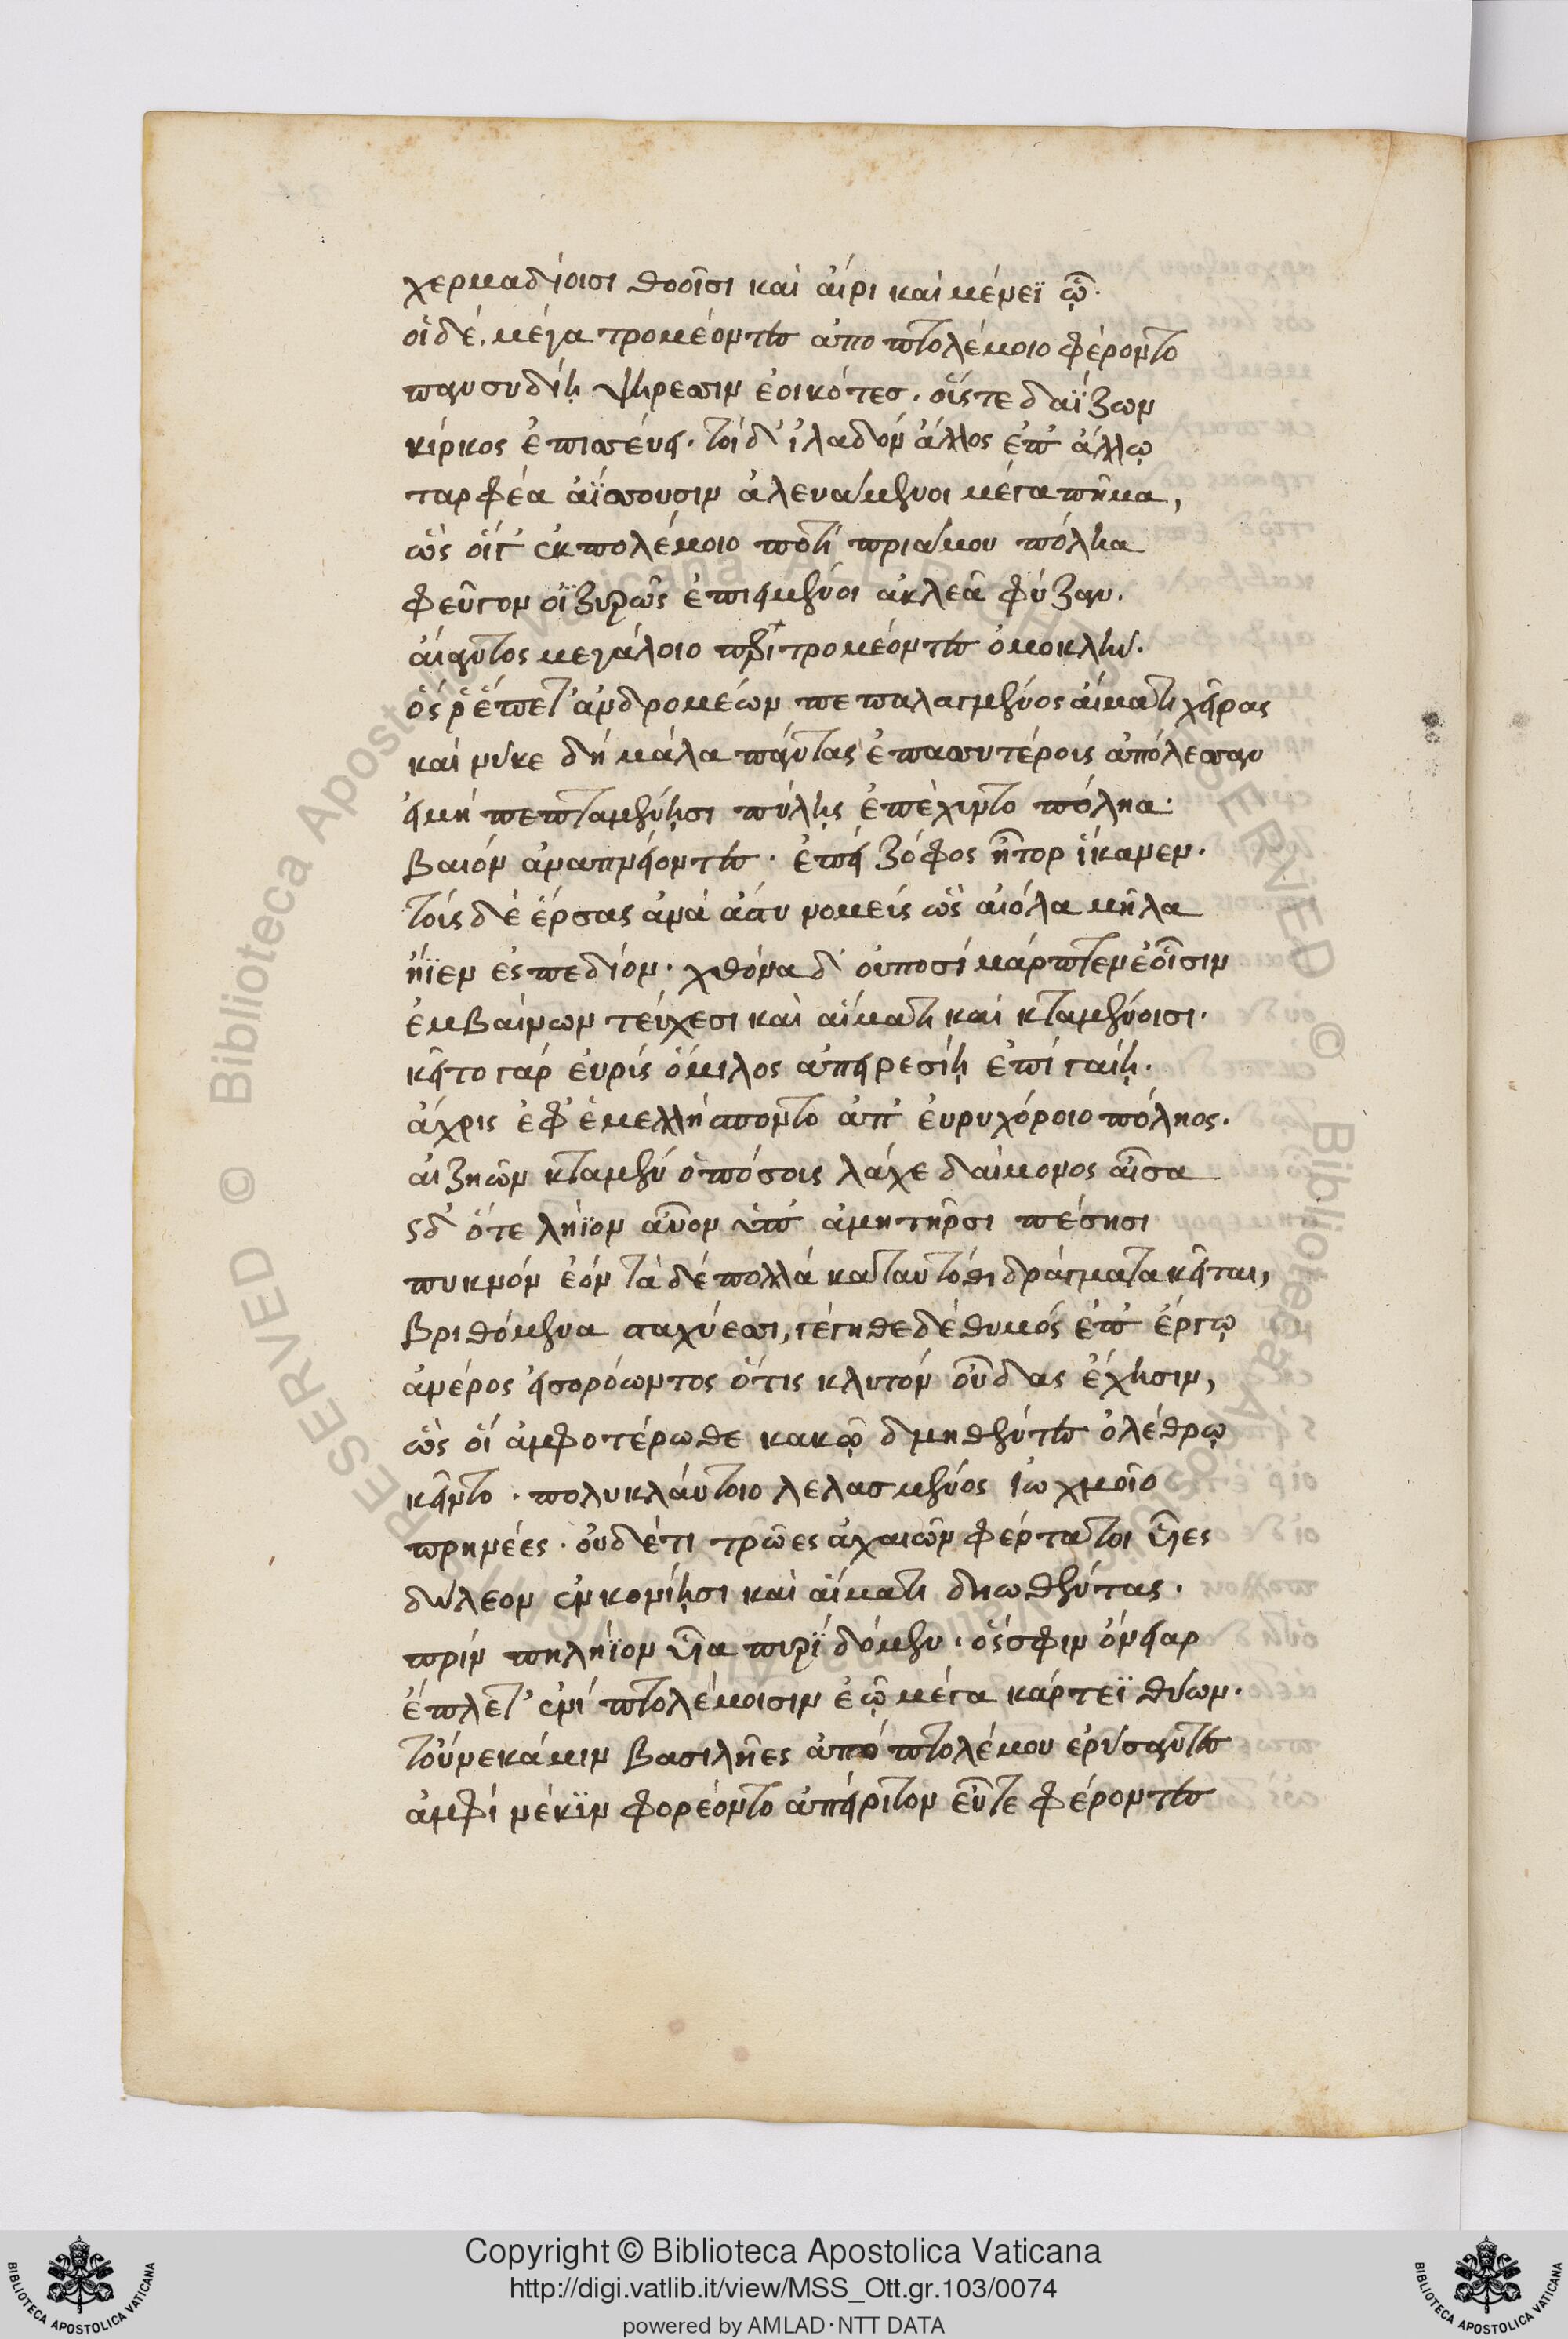 χερμαδίοισι θοοῖσι καὶ ἄϊρι καὶ μένεϊ ᾧ·
οἱ δὲ. μέγα τρομέοντες ἀπο πτολέμοιο φέροντο
πανσυδίῃ ψήρεσσιν ἐοικότεσ. οὕς τε δαΐζων
κίρκος ἐπισσεύει. τοὶ δ' ἰλαδὸν ἄλλος ἐπ' ἄλλῳ
ταρφέα ἀΐσσουσιν ἀλευάμενοι μέγα πῆμα,
ὣς οἵγ' ἐκ πολέμοιο ποτὶ πριάμου πόληα
φεῦγον ὀϊζυρῶς ἐπιειμένοι ἀκλεᾶ φύζαν.
αἴαντος μεγάλοιο περιτρομέοντες ὁμοκλήν.
ὅς ῥ' ἕπετ' ἀνδρομέων πεπαλαγμένος αἵματι χεῖρας
καί νύκε δὴ μάλα πάντας ἐπασσυτέροις ἀπόλεσσαν
εἰμὴ πεπταμένῃσι πύλῃς ἐπέχυντο πόληα·
βαιὸν ἀναπνείοντες. ἐπεὶ ζόφος ἦτορ ἵκανεν.
τοὺς δὲ ἔρσας ἀνὰ ἄστυ νομεὺς ὣς αἰόλα μῆλα
ἤϊεν ἐς πεδίον. χθόνα δ' οὐποσὶ μάρπτεν ἑοῖσιν
ἐμβαίνων τεύχεσι καὶ αἵματι καὶ κταμένοισι.
κεῖτο γὰρ εὐρὺς ὅμιλος ἀπειρεσίῃ ἐπὶ γαίῃ.
ἄχρις ἐφ' ἑμελλήσποντο ἀπ' εὐρυχόροιο πόληος.
αἰζηῶν κταμένων ὁπόσοις λάχε δαίμονος αἶσα
ὡς δ' ὅτε λήϊον αὖον ὑπ' ἀμητῆρσι πέσησι
πυκνὸν ἐὸν τὰ δὲ πολλὰ κατ' αυτόθι δράγματα κεῖται,
βριθόμενα σταχύεσσι, γέγηθε δὲ θυμός ἐπ' ἔργῳ
ἀνέρος εἰσορόωντος ὅτις κλυτὸν οὖδας ἔχησιν,
ὣς οἵ ἀμφοτέρωθε κακῷ δμηθέντες ὀλέθρῳ
κεῖντο. πολυκλαύτοιο λελασμένος ἰωχμοῖο
πρηνέες. οὐδ' ἔτι τρῶες ἀχαιῶν φέρτατοι υἷες
δύλεον ἐν κονίῃσι καὶ αἵματι δηωθέντας.
πρὶν πηλήϊον υἷα πυρὶ δόμεν. ὅς σφιν ὄνειαρ
ἔπλετ' ἐνὶ πτολέμοισιν ἑῷ μέγα κάρτεϊ θύων.
τοὔνεκά μιν βασιλῆες ἀπὸ πτολέμου ἐρύσαντες
ἀμφὶ νέκϋν φορέοντο ἀπείριτον εὖτε φέροντες
Copyright © Biblioteca Apostolica Vaticana
http://digi.vatlib.it/view/MSS_Ott.gr.103/0074
powered by AMLAD·NTT DATA